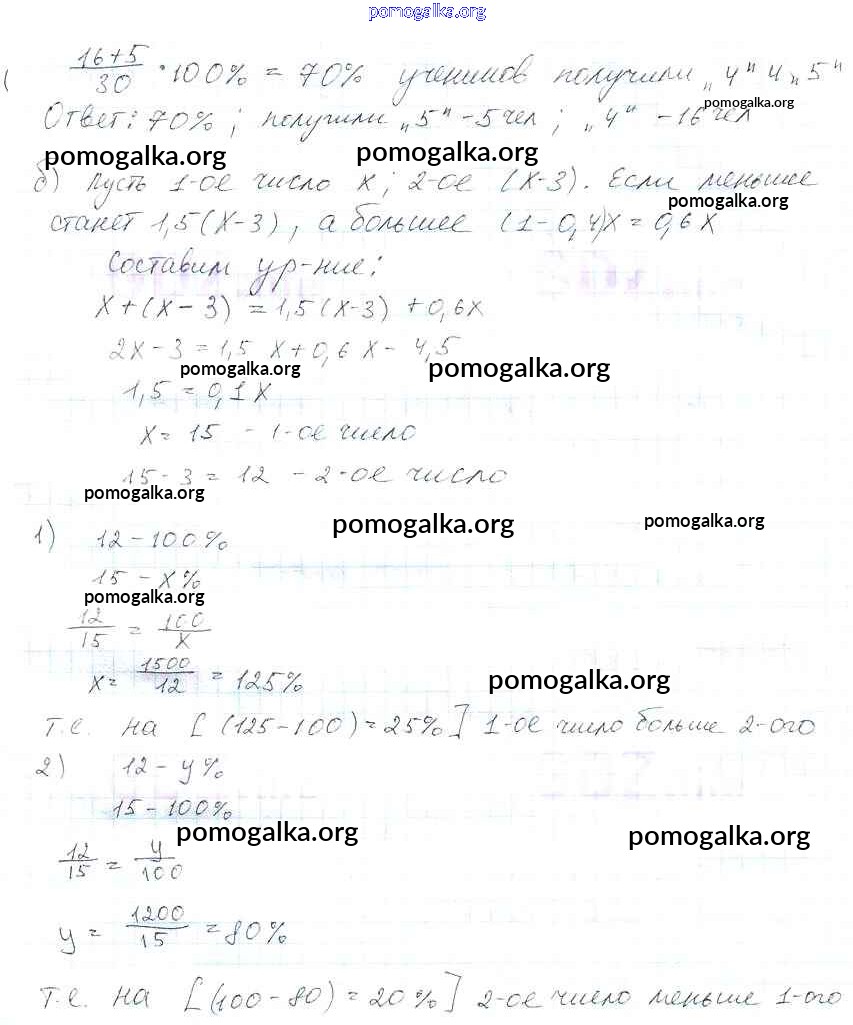 pomogalka.org
(16+5)/30 · 100% = 70% учеников получили „4" и „5"
pomogalka.org
Ответ: 70%; получили „5" - 5 чел; „4" - 16 чел
pomogalka.org pomogalka.org
б) Пусть 1-ое число x; 2-ое (x-3). Если меньшее
pomogalka.org
станет 1,5(x-3), а большее (1-0,4)x = 0,6x
Составим ур-ние:
x + (x-3) = 1,5(x-3) + 0,6x
2x - 3 = 1,5x + 0,6x - 4,5
pomogalka.org pomogalka.org
1,5 = 0,1x
x = 15 - 1-ое число
15 - 3 = 12 - 2-ое число
pomogalka.org
pomogalka.org pomogalka.org
1) 12 - 100%
15 - x%
pomogalka.org
12/15 = 100/x
x = 1500/12 = 125%
pomogalka.org
т.е. на [(125-100) = 25%] 1-ое число больше 2-ого
2) 12 - y%
15 - 100%
pomogalka.org pomogalka.org
12/15 = y/100
y = 1200/15 = 80%
т.е. на [(100-80) = 20%] 2-ое число меньше 1-ого